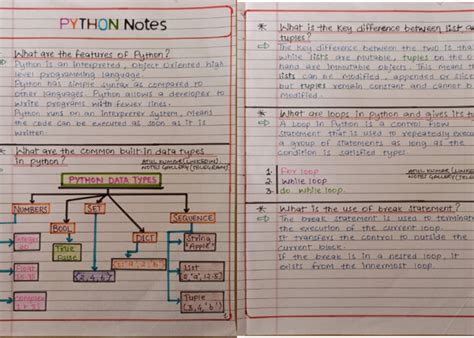 PYTHON Notes
* What are the features of Python?
⇒ Python is an interpreted, object oriented high
level programming language.
Python has simple syntax as compared to
other languages. Python allows a developer to
write programs with fewer lines.
Python runs on an interpreter system, means
the code can be executed as soon as it is
written.
* What are the common built-in data types
in python?
ATUL KUMAR (LINKEDIN)
NOTES GALLERY (TELEGRAM)
PYTHON DATA TYPES
NUMBERS
SET
SEQUENCE
BOOL
DICT
True
False
String
"Apple"
Float
List
Tuple
* What is the key difference between list
tuples?
⇒ The key difference between the two is tha
while lists are mutable, tuples on the o
hand are immutable objects. This means t
lists can be modified, appended or slice
but tuples remain constant and cannot b
modified.
* What are loops in python and gives its
⇒ A loop in Python is a control flow
statement that is used to repeatedly execu
a group of statements as long as the
condition is satisfied types.
ATUL KUMAR (LINKEDIN
NOTES GALLERY (TELE
1 For loop
2 while loop
3 do while loop.
* What is the use of break statement?
⇒ The break statement is used to terminate
the execution of the current loop.
It transfers the control to outside the
current block.
If the break is in a nested loop, it
exists from the innermost loop.